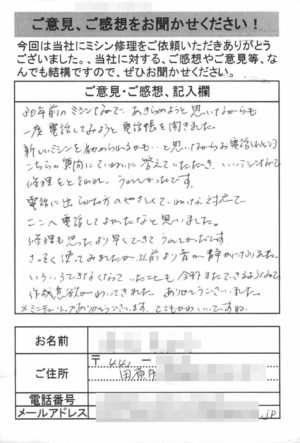 ご意見、ご感想をお聞かせください！
今回は当社にミシン修理をご依頼いただきありがとう
ございました。、当社に対する、ご感想やご意見等、な
んでも結構ですので、ぜひお聞かせください。
ご意見・ご感想、記入欄
30年前のミシンなので、あきらめようと思いながらも
一度電話してみようと電話帳を開きました。
新しいミシンを勧められるかも…と思いながらお電話したところ
こちらの質問にていねいに答えていただき、いいミシンなので
修理をと言われ、うれしかったです。
電話に出られた方のやさしくていねいな対応で
ここへ電話してよかったなと思いました。
修理も思ったより早くできてうれしかったです。
さっそく使ってみましたが以前より音が静かになりました。
いろいろできなくなっていたことも今回またできるようになって
作成意欲がわいてきました。ありがとうございました。
※ミニチューリップありがとうございます。とてもかわいいですね。
お名前
ご住所
〒441-
田原市
電話番号
メールアドレス
.jp